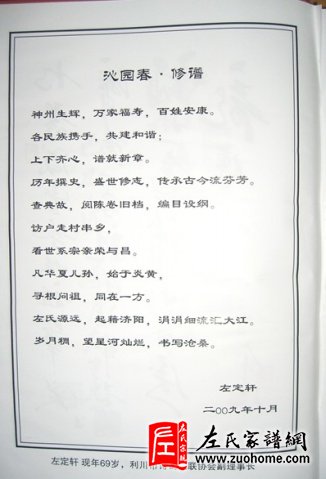 沁园春·修谱
神州生辉，万家福寿，百姓安康。
各民族携手，共建和谐；
上下齐心，谱就新章。
历年撰史，盛世修志，传承古今流芬芳。
查典故，阅陈卷旧档，编目设纲。
访户走村串乡，
看世系宗亲荣与昌。
凡华夏儿孙，始于炎黄，
寻根问祖，同在一方。
左氏源远，起藉济阳，涓涓细流汇大江。
岁月稠，望星河灿烂，书写沧桑。
左定轩
二00九年十月
左定轩 现年69岁，利川市 联协会副理事长
左氏家譜網
www.zuohome.com